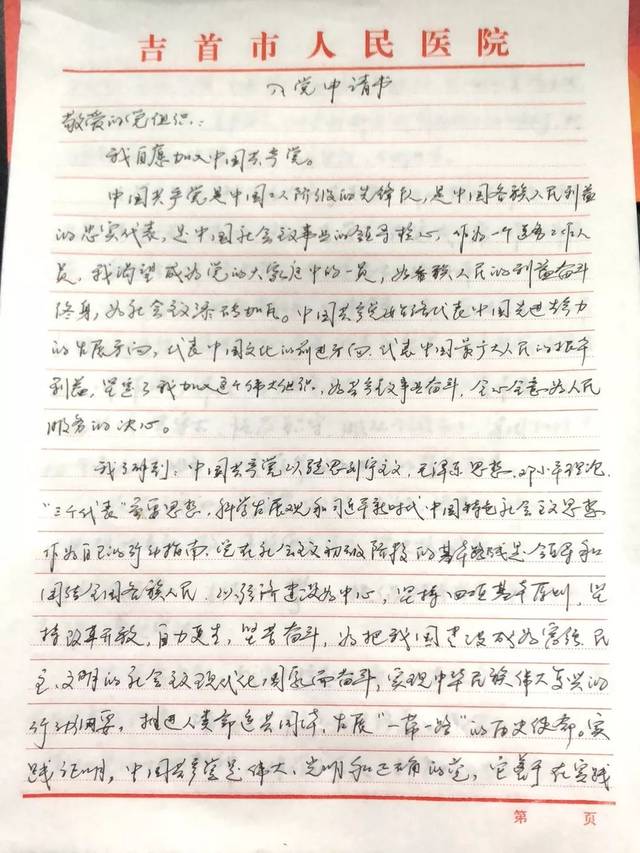 吉首市人民医院
入党申请书
敬爱的党组织：
我自愿加入中国共产党。
中国共产党是中国工人阶级的先锋队，是中国各族人民利益
的忠实代表，是中国社会主义事业的领导核心，作为一个医务工作人
员，我渴望成为党的大家庭中的一员，为各族人民的利益奋斗
终身，为社会主义添砖加瓦。中国共产党始终代表中国先进生产力
的发展方向，代表中国文化的前进方向，代表中国最广大人民的根本
利益，坚定了我加入这个伟大组织，为共产主义事业奋斗，全心全意为人民
服务的决心。
我了解到：中国共产党以马克思列宁主义，毛泽东思想，邓小平理论，
“三个代表”重要思想，科学发展观和习近平新时代中国特色社会主义思想
作为自己的行动指南，党在社会主义初级阶段的基本路线是领导和
团结全国各族人民，以经济建设为中心，坚持四项基本原则，坚
持改革开放，自力更生，艰苦奋斗，为把我国建设成为富强民
主，文明的社会主义现代化国家而奋斗，实现中华民族伟大复兴的
行动纲要，推进人类命运共同体，发展“一带一路”的历史使命。实
践证明，中国共产党是伟大，光明和正确的党，它善于在实践
第 页